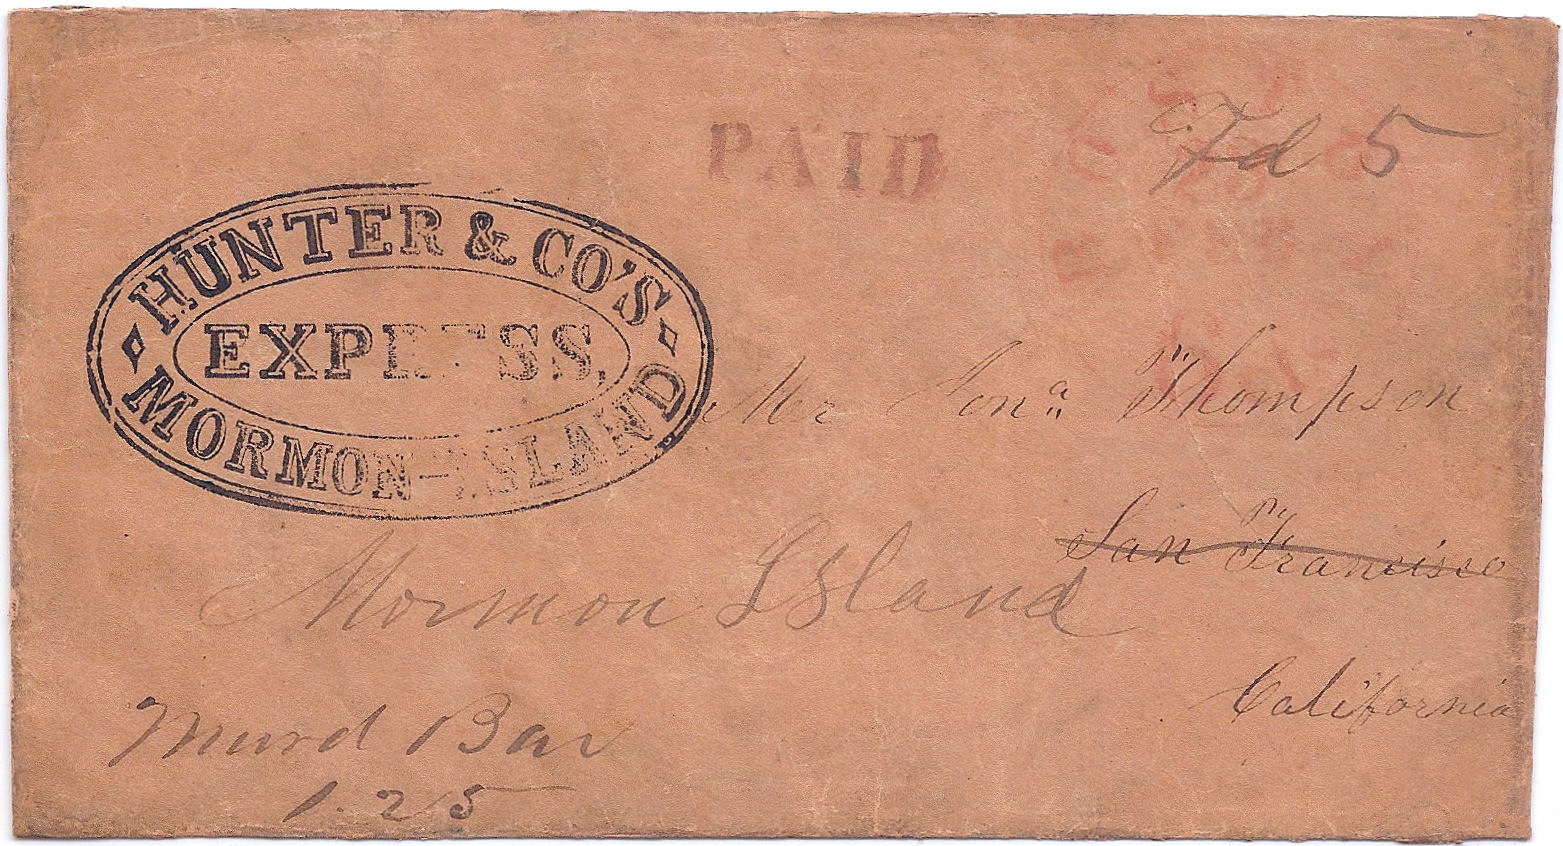 PAID
Fd 5
HUNTER & CO'S
EXPRESS.
MORMON-ISLAND
Mr Jona. Thompson
San Francisco
Mormon Island
California
Bar
1.25